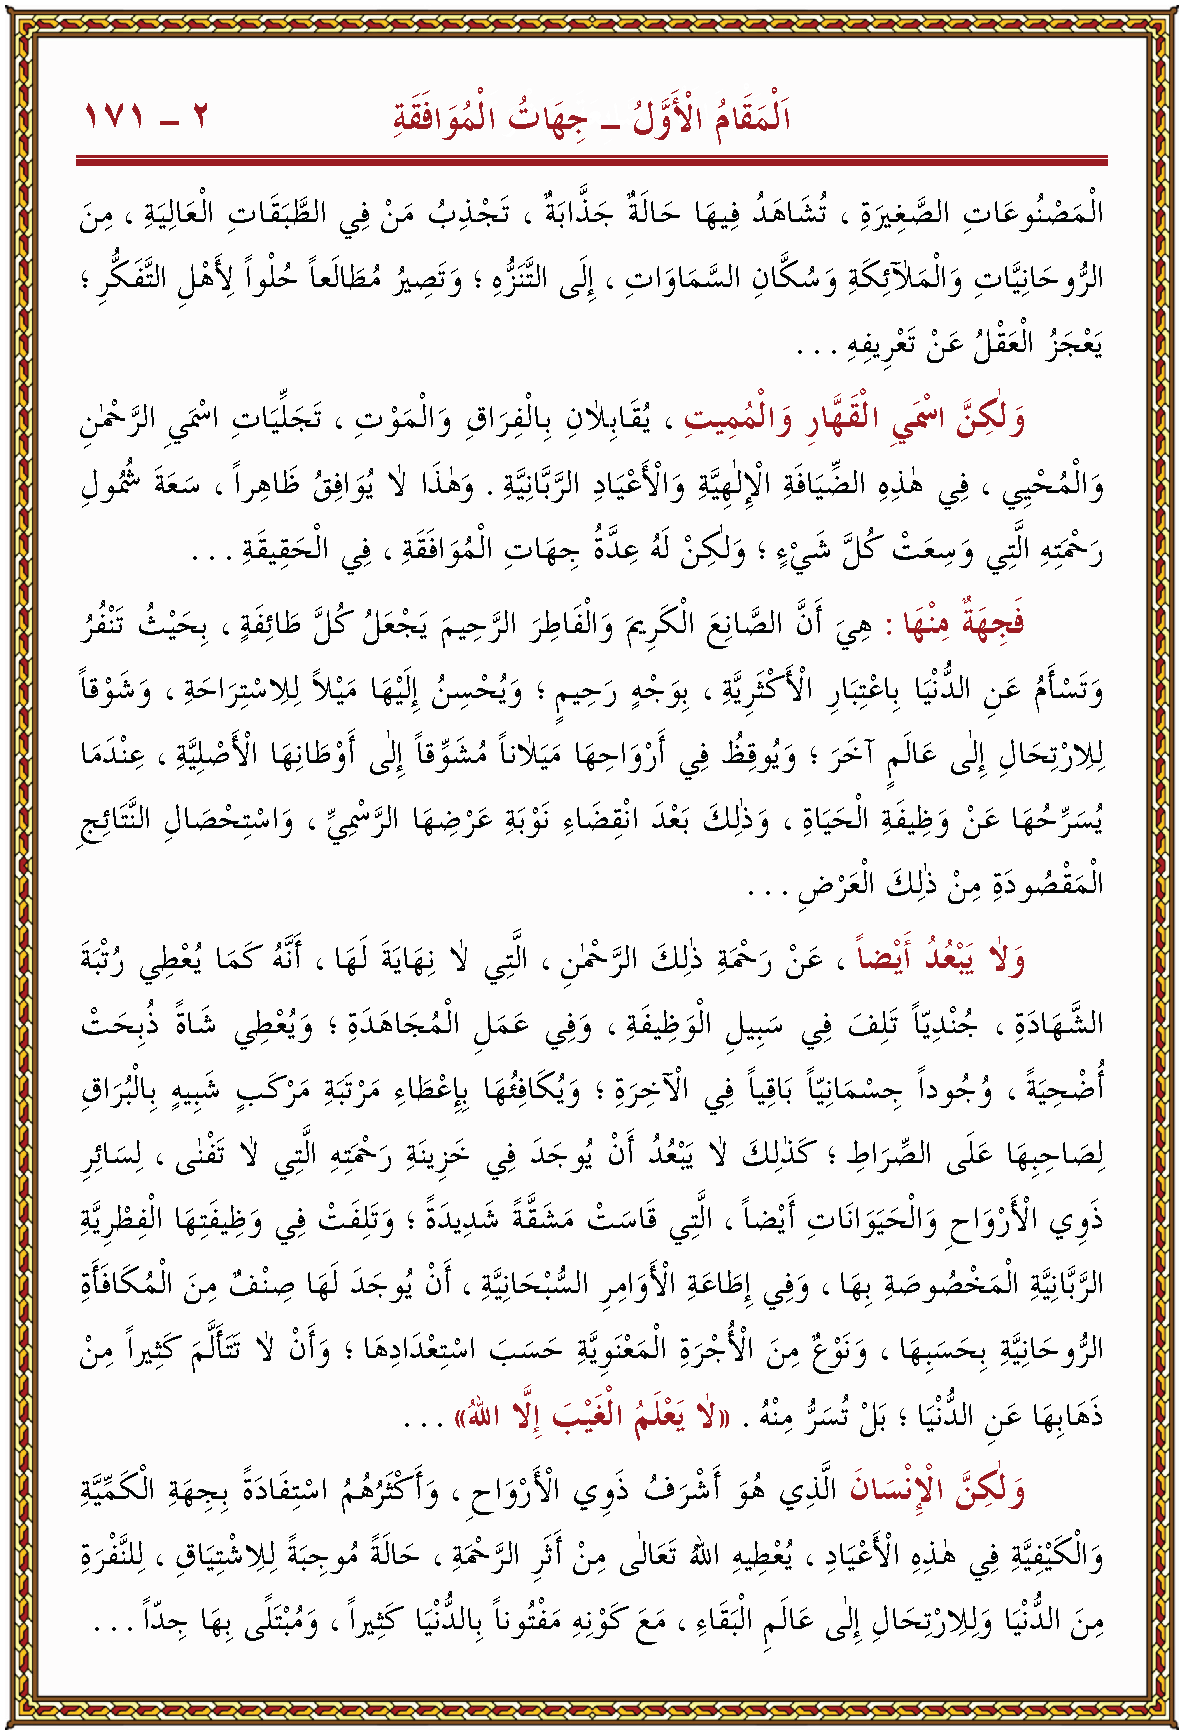 اَلْمَقَامُ الْأَوَّلُ ـ جِهَاتُ الْمُوَافَقَةِ ٢ ـ ١٧١
الْمَصْنُوعَاتِ الصَّغِيرَةِ ، تُشَاهَدُ فِيهَا حَالَةٌ جَذَّابَةٌ ، تَجْذِبُ مَنْ فِي الطَّبَقَاتِ الْعَالِيَةِ ، مِنَ
الرُّوحَانِيَّاتِ وَالْمَلٰٓائِكَةِ وَسُكَّانِ السَّمَاوَاتِ ، إِلَى التَّنَزُّهِ ؛ وَتَصِيرُ مُطَالَعاً حُلْواً لِأَهْلِ التَّفَكُّرِ ؛
يَعْجَزُ الْعَقْلُ عَنْ تَعْرِيفِهِ . . .
وَلٰكِنَّ اسْمَيِ الْقَهَّارِ وَالْمُمِيتِ ، يُقَابِلَانِ بِالْفِرَاقِ وَالْمَوْتِ ، تَجَلِّيَاتِ اسْمَيِ الرَّحْمٰنِ
وَالْمُحْيِي ، فِي هٰذِهِ الضِّيَافَةِ الْإِلٰهِيَّةِ وَالْأَعْيَادِ الرَّبَّانِيَّةِ . وَهٰذَا لَا يُوَافِقُ ظَاهِراً ، سَعَةَ شُمُولِ
رَحْمَتِهِ الَّتِي وَسِعَتْ كُلَّ شَيْءٍ ؛ وَلٰكِنْ لَهُ عِدَّةُ جِهَاتِ الْمُوَافَقَةِ ، فِي الْحَقِيقَةِ . . .
فَجِهَةٌ مِنْهَا : هِيَ أَنَّ الصَّانِعَ الْكَرِيمَ وَالْفَاطِرَ الرَّحِيمَ يَجْعَلُ كُلَّ طَائِفَةٍ ، بِحَيْثُ تَنْفُرُ
وَتَسْأَمُ عَنِ الدُّنْيَا بِاعْتِبَارِ الْأَكْثَرِيَّةِ ، بِوَجْهٍ رَحِيمٍ ؛ وَيُحْسِنُ إِلَيْهَا مَيْلاً لِلِاسْتِرَاحَةِ ، وَشَوْقاً
لِلِارْتِحَالِ إِلٰى عَالَمٍ آخَرَ ؛ وَيُوقِظُ فِي أَرْوَاحِهَا مَيَلَاناً مُشَوِّقاً إِلٰى أَوْطَانِهَا الْأَصْلِيَّةِ ، عِنْدَمَا
يُسَرِّحُهَا عَنْ وَظِيفَةِ الْحَيَاةِ ، وَذٰلِكَ بَعْدَ انْقِضَاءِ نَوْبَةِ عَرْضِهَا الرَّسْمِيِّ ، وَاسْتِحْصَالِ النَّتَائِجِ
الْمَقْصُودَةِ مِنْ ذٰلِكَ الْعَرْضِ . . .
وَلَا يَبْعُدُ أَيْضاً ، عَنْ رَحْمَةِ ذٰلِكَ الرَّحْمٰنِ ، الَّتِي لَا نِهَايَةَ لَهَا ، أَنَّهُ كَمَا يُعْطِي رُتْبَةَ
الشَّهَادَةِ ، جُنْدِيّاً تَلِفَ فِي سَبِيلِ الْوَظِيفَةِ ، وَفِي عَمَلِ الْمُجَاهَدَةِ ؛ وَيُعْطِي شَاةً ذُبِحَتْ
أُضْحِيَةً ، وُجُوداً جِسْمَانِيّاً بَاقِياً فِي الْآخِرَةِ ؛ وَيُكَافِئُهَا بِإِعْطَاءِ مَرْتَبَةِ مَرْكَبٍ شَبِيهٍ بِالْبُرَاقِ
لِصَاحِبِهَا عَلَى الصِّرَاطِ ؛ كَذٰلِكَ لَا يَبْعُدُ أَنْ يُوجَدَ فِي خَزِينَةِ رَحْمَتِهِ الَّتِي لَا تَفْنٰى ، لِسَائِرِ
ذَوِي الْأَرْوَاحِ وَالْحَيَوَانَاتِ أَيْضاً ، الَّتِي قَاسَتْ مَشَقَّةً شَدِيدَةً ؛ وَتَلِفَتْ فِي وَظِيفَتِهَا الْفِطْرِيَّةِ
الرَّبَّانِيَّةِ الْمَخْصُوصَةِ بِهَا ، وَفِي إِطَاعَةِ الْأَوَامِرِ السُّبْحَانِيَّةِ ، أَنْ يُوجَدَ لَهَا صِنْفٌ مِنَ الْمُكَافَأَةِ
الرُّوحَانِيَّةِ بِحَسَبِهَا ، وَنَوْعٌ مِنَ الْأُجْرَةِ الْمَعْنَوِيَّةِ حَسَبَ اسْتِعْدَادِهَا ؛ وَأَنْ لَا تَتَأَلَّمَ كَثِيراً مِنْ
ذَهَابِهَا عَنِ الدُّنْيَا ؛ بَلْ تُسَرُّ مِنْهُ . «لَا يَعْلَمُ الْغَيْبَ إِلَّا اللهُ» . . .
وَلٰكِنَّ الْإِنْسَانَ الَّذِي هُوَ أَشْرَفُ ذَوِي الْأَرْوَاحِ ، وَأَكْثَرُهُمُ اسْتِفَادَةً بِجِهَةِ الْكَمِّيَّةِ
وَالْكَيْفِيَّةِ فِي هٰذِهِ الْأَعْيَادِ ، يُعْطِيهِ اللهُ تَعَالٰى مِنْ أَثَرِ الرَّحْمَةِ ، حَالَةً مُوجِبَةً لِلِاشْتِيَاقِ ، لِلنَّفْرَةِ
مِنَ الدُّنْيَا وَلِلِارْتِحَالِ إِلٰى عَالَمِ الْبَقَاءِ ، مَعَ كَوْنِهِ مَفْتُوناً بِالدُّنْيَا كَثِيراً ، وَمُبْتَلًى بِهَا جِدّاً . . .